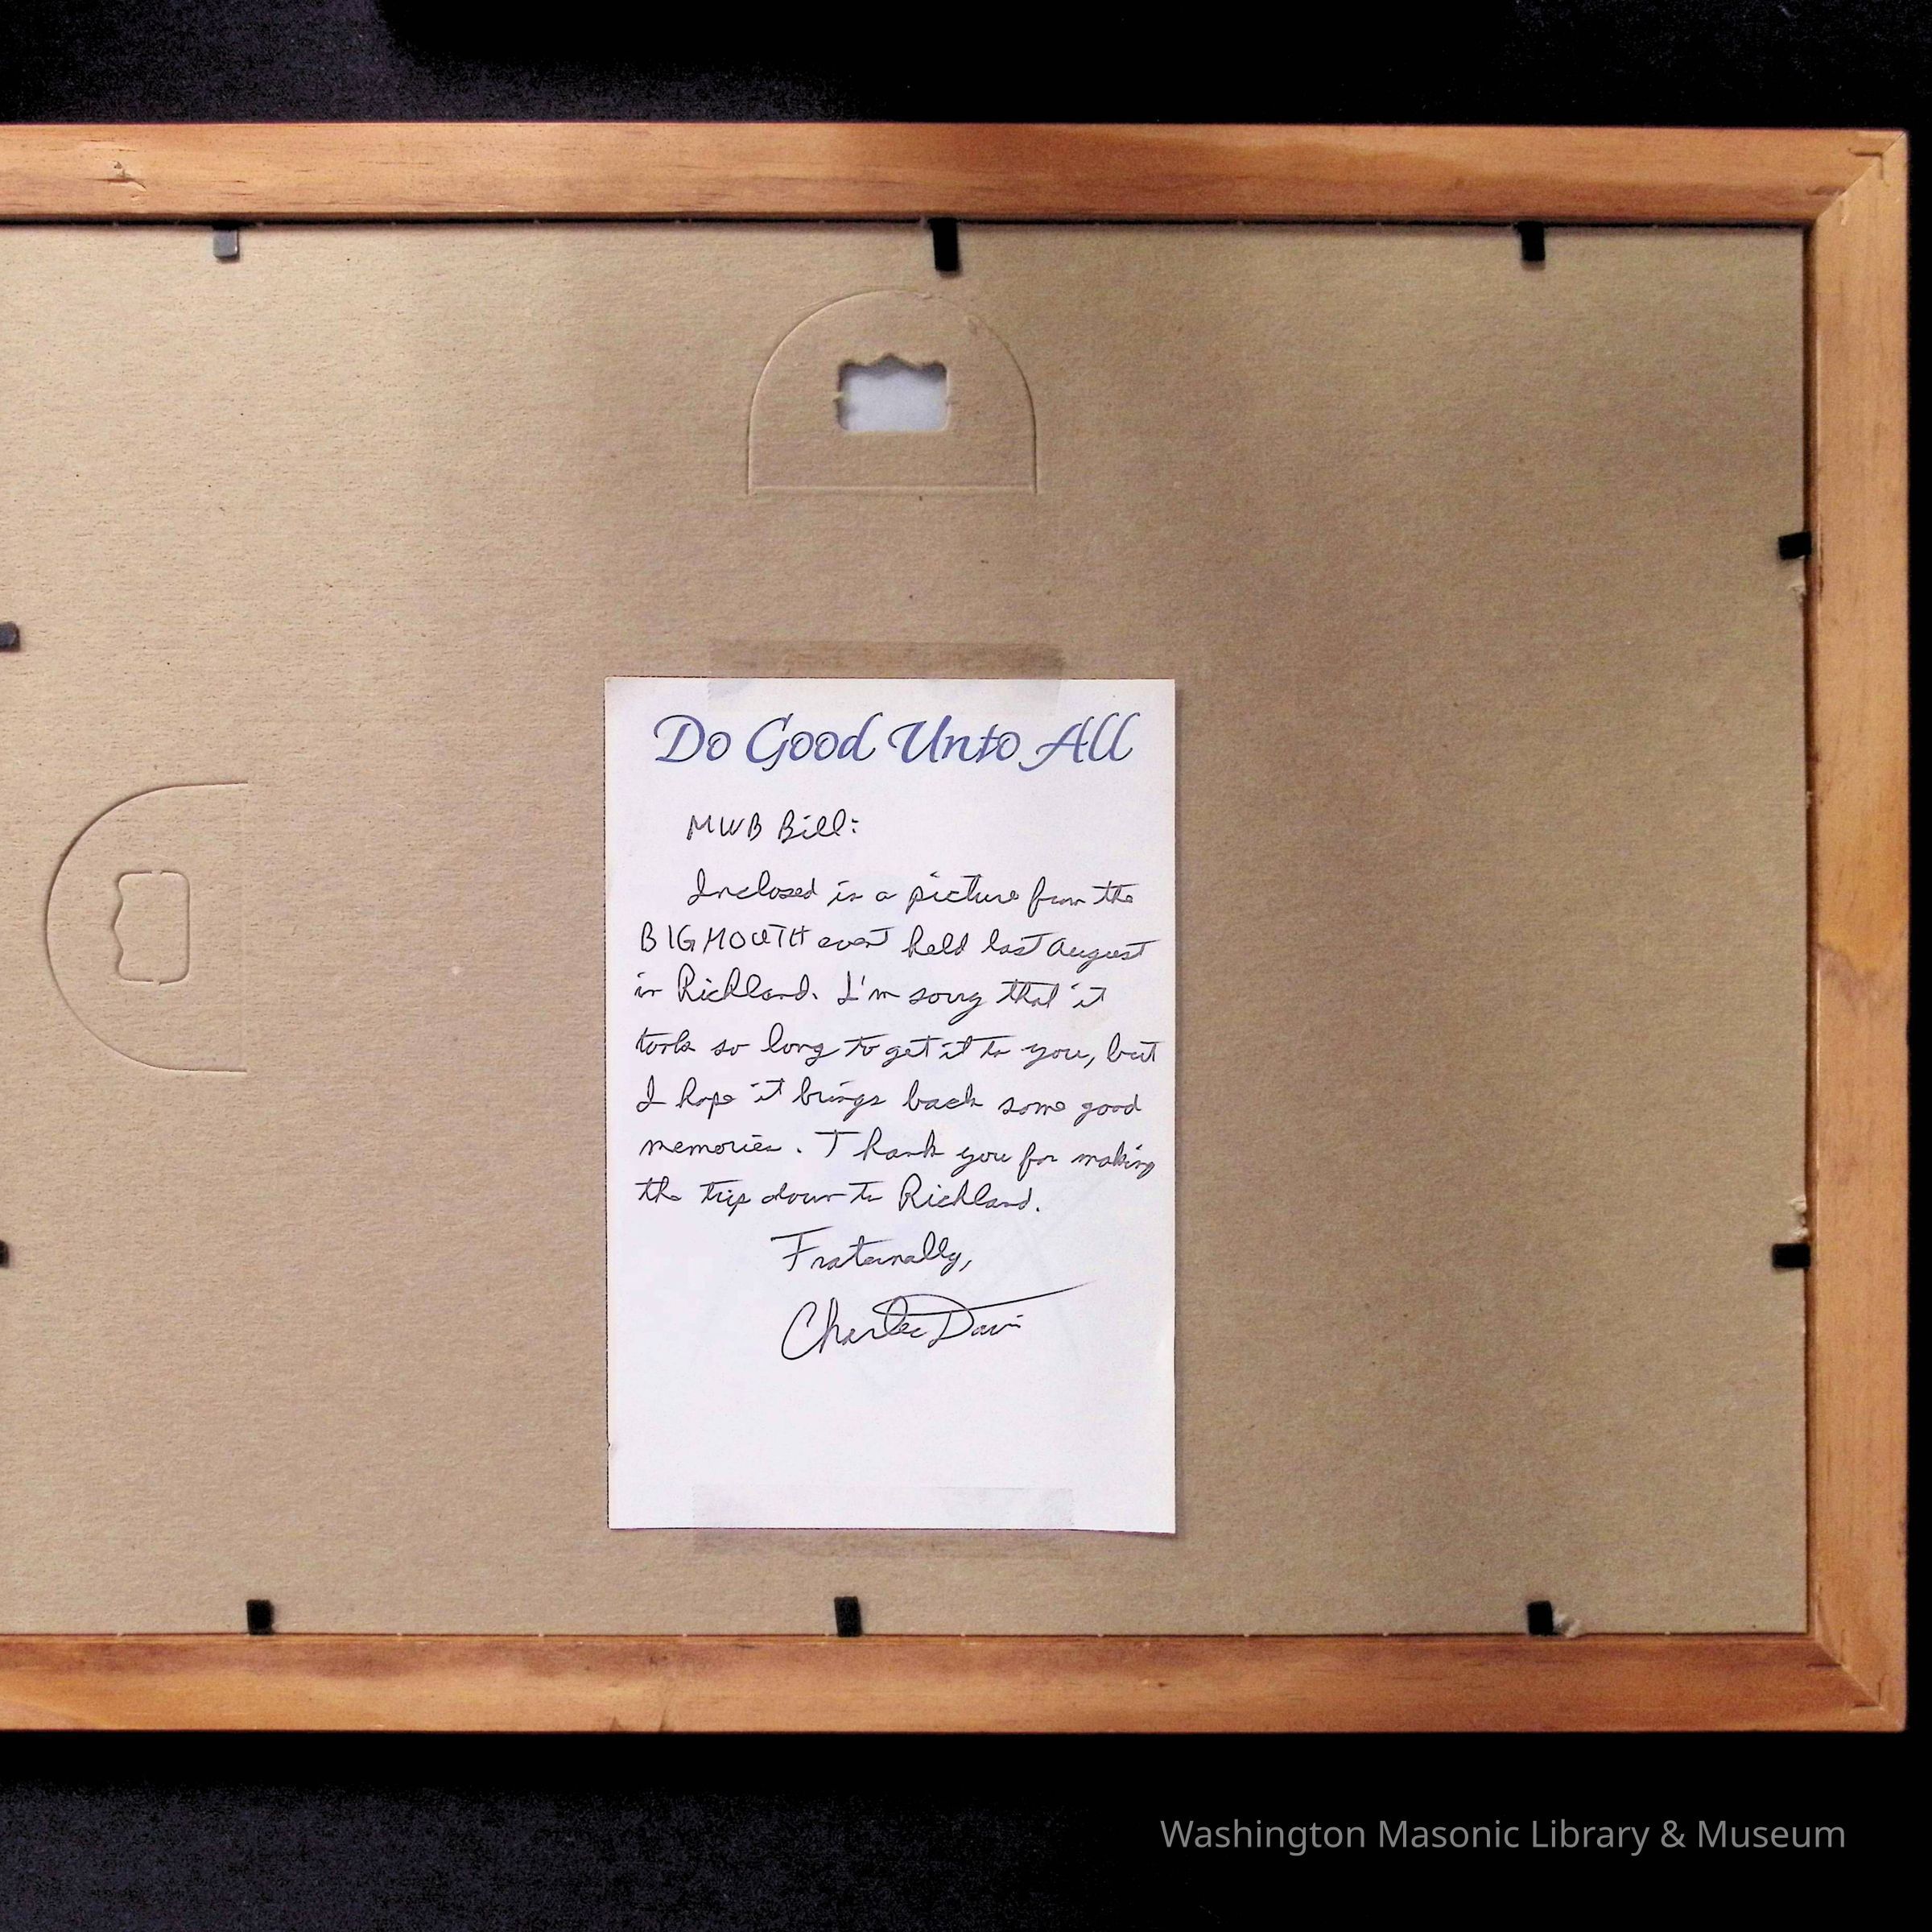 Do Good Unto All
MWB Bill:
Inclosed is a picture from the
BIGMOUTH event held last August
in Richland. I'm sorry that it
took so long to get it to you, but
I hope it brings back some good
memories. Thank you for making
the trip down to Richland.
Fraternally,
Charles Davis
Washington Masonic Library & Museum